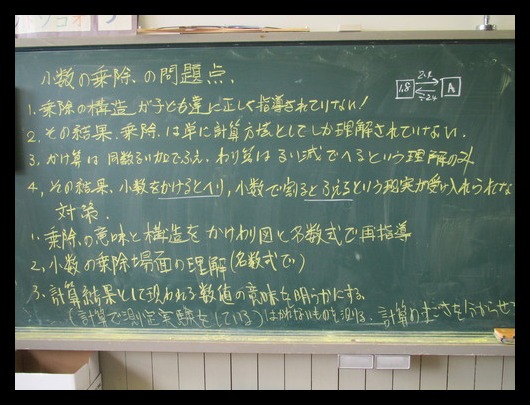 小数の乗除の問題点.
1. 乗除の構造が子ども達に正しく指導されていない!
2. その結果、乗除は単に計算方法としてしか理解されていない.
3. かけ算は同数るい加でふえ、わり算はるい減でへるという理解のみ
4. その結果、小数をかけるとへり, 小数で割るとふえるという現実が受け入れられてな
対策.
1. 乗除の意味と構造をかけわり図と名数式で再指導
2. 小数の乗除場面の理解(名数式で)
3. 計算結果として現われる数値の意味を明らかにする.
(計算で測定実験をしている) はかれないものを測る. 計算のすごさを分からせ
1.8 ×2.4 ÷2.4 A